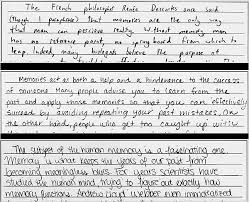 The French philosopher René Descartes once said
(though I paraphrase) that memories are the only way
that man can perceive reality. Without memory man
has no reference point, no spring board from which to
leap. Indeed, many believe the purpose of
Memories act as both a help and a hinderence to the success
of someone. Many people advise you to learn from the
past and apply those memories so that you can effectively
succeed by avoiding repeating your past mistakes. On
the other hand, people who get too caught up with
The subject of the human memory is a fascinating one.
Memory is what keeps the years of our past from
becoming meaningless blurs. For years scientists have
studied the human mind, trying to figure out exactly how
memory functions. Andrew Lloyd Webber even immortalized